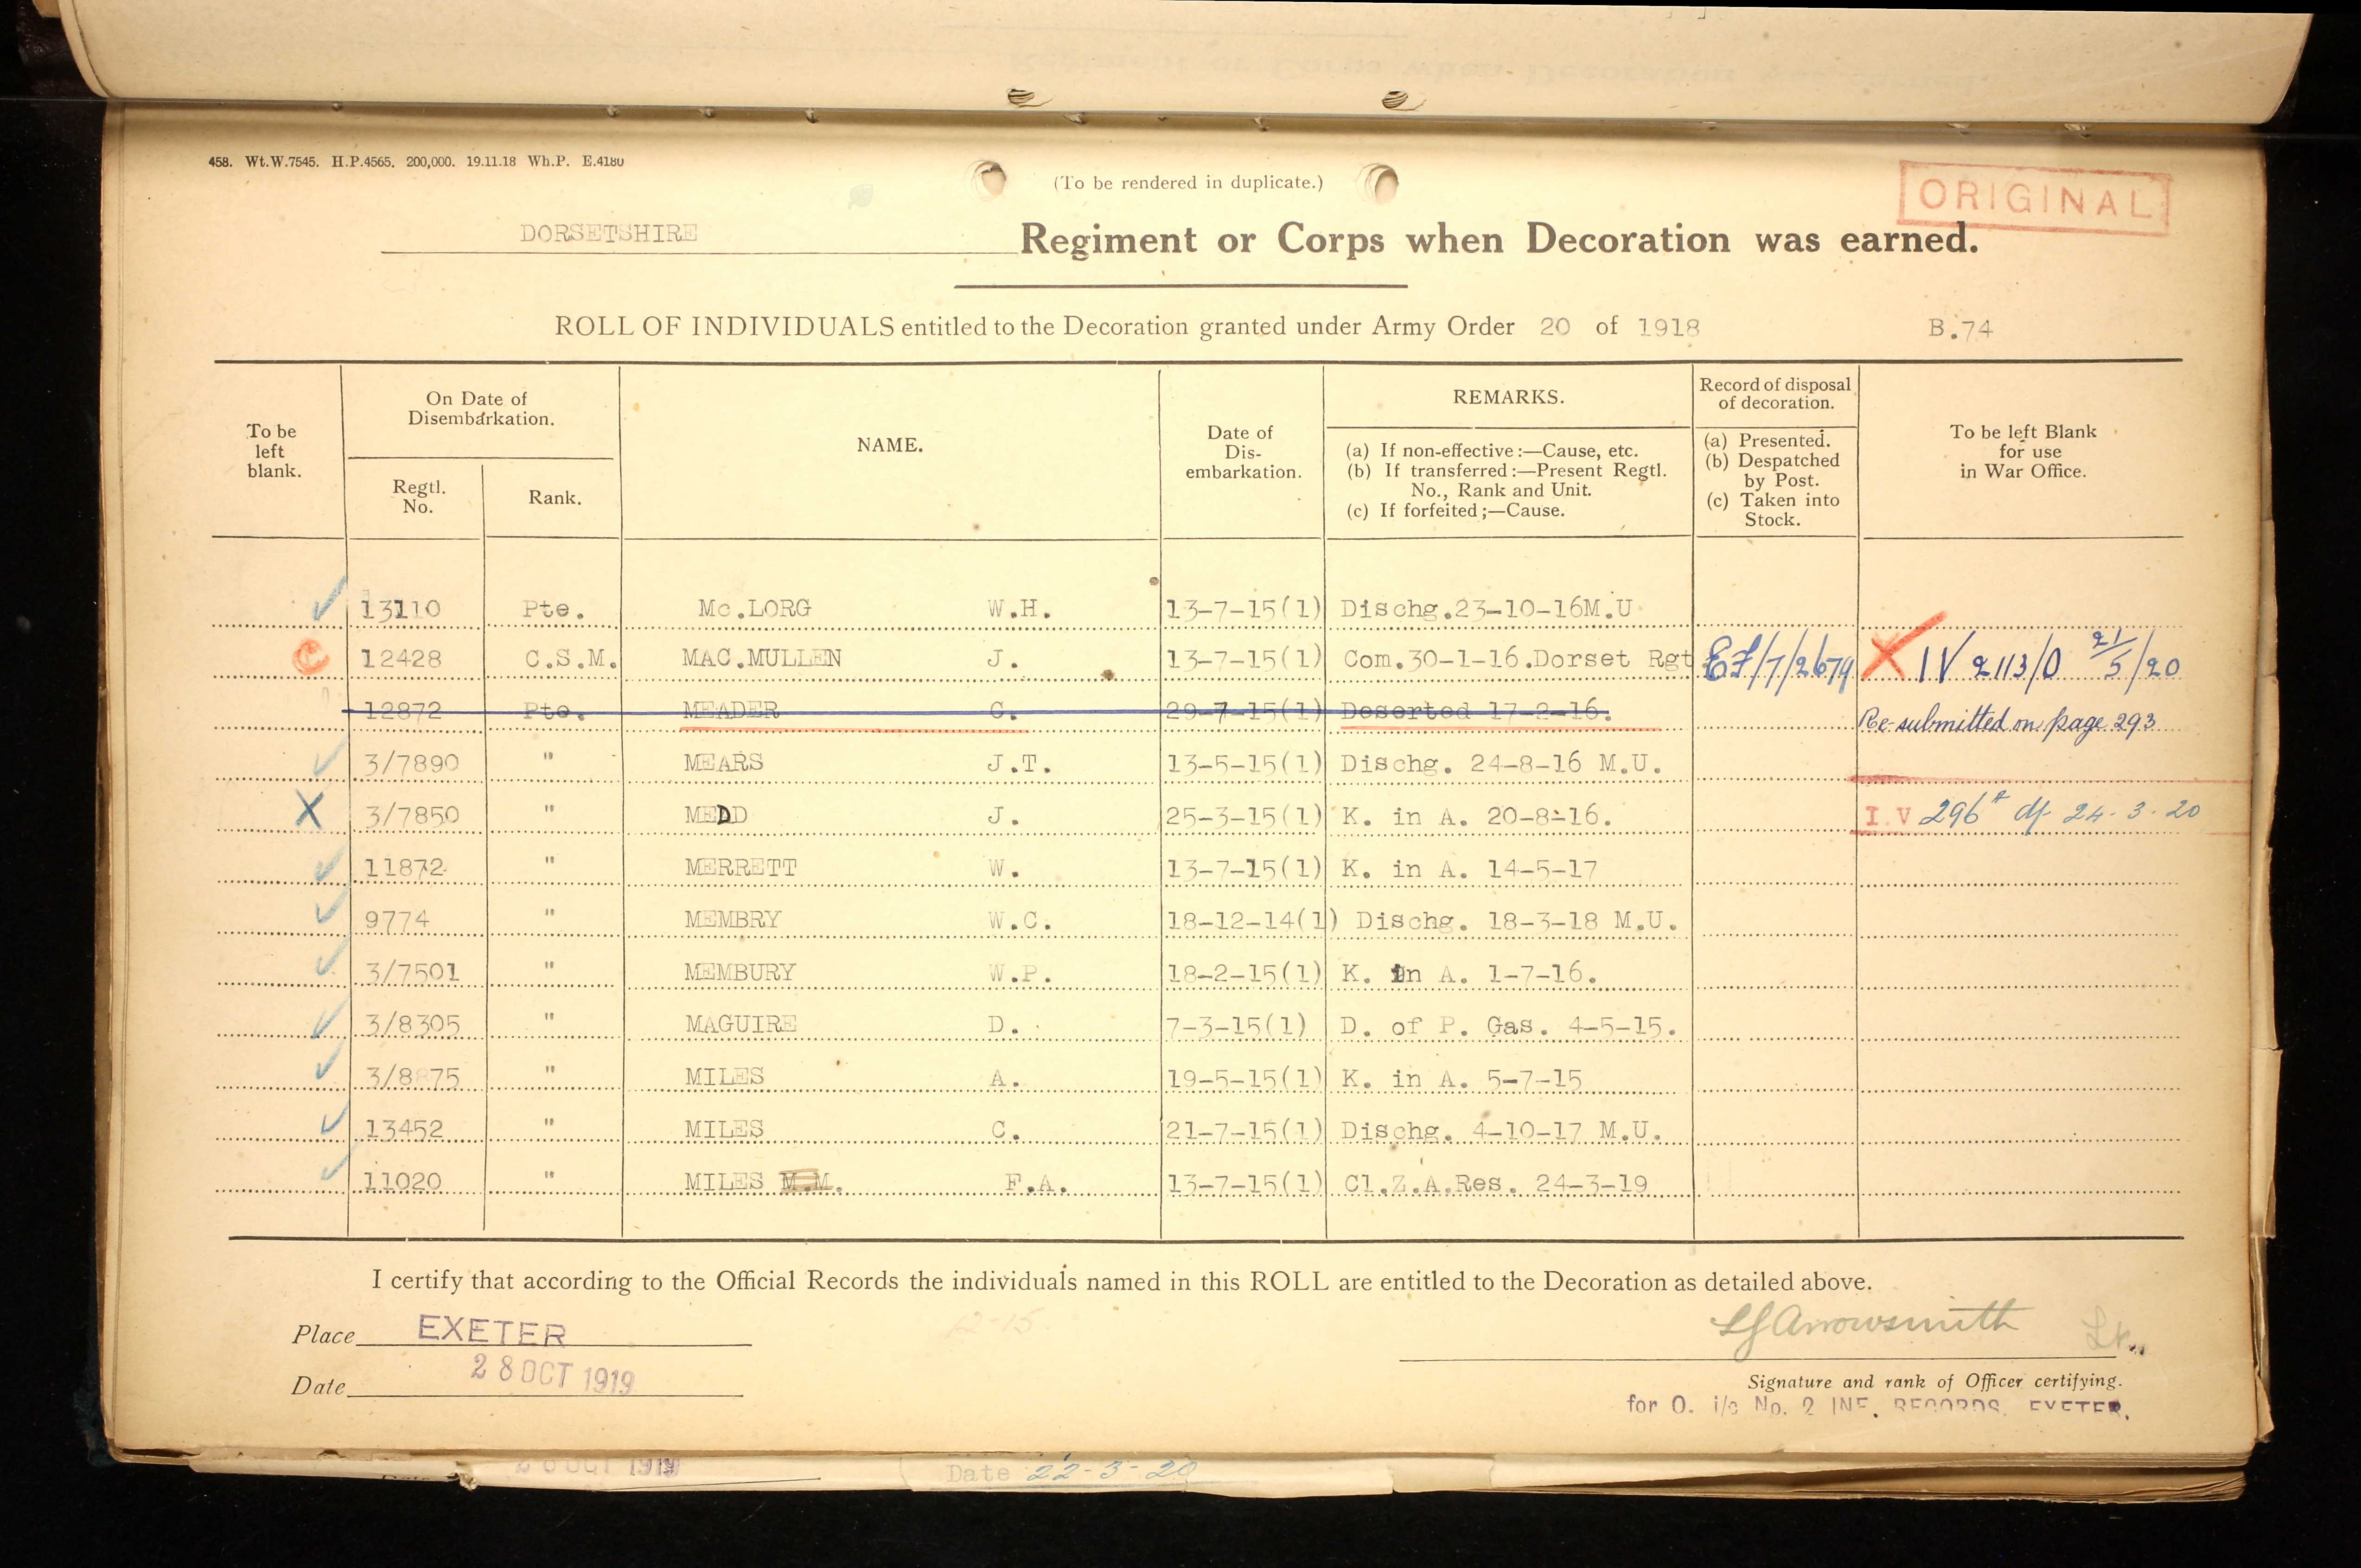 458. Wt.W.7545. H.P.4565. 200,000. 19.11.18 Wh.P. E.4180
(To be rendered in duplicate.)
ORIGINAL
DORSETSHIRE Regiment or Corps when Decoration was earned.
ROLL OF INDIVIDUALS entitled to the Decoration granted under Army Order 20 of 1918 B.74
To be left blank.
On Date of Disembarkation.
Regtl. No.
Rank.
NAME.
Date of Dis-embarkation.
REMARKS.
(a) If non-effective:—Cause, etc.
(b) If transferred:—Present Regtl. No., Rank and Unit.
(c) If forfeited;—Cause.
Record of disposal of decoration.
(a) Presented.
(b) Despatched by Post.
(c) Taken into Stock.
To be left Blank for use in War Office.
13110 Pte. Mc.LORG W.H. 13-7-15(1) Dischg.23-10-16M.U
C 12428 C.S.M. MAC.MULLEN J. 13-7-15(1) Com.30-1-16.Dorset Rgt EF/7/2674 X IV 2113/0 21/5/20
12872 Pte. MEADER C. 29-7-15(1) Deserted 17-2-16. Re-submitted on page 293
3/7890 " MEARS J.T. 13-5-15(1) Dischg. 24-8-16 M.U.
X 3/7850 " MEDD J. 25-3-15(1) K. in A. 20-8-16. I.V 296A df 24-3-20
11872 " MERRETT W. 13-7-15(1) K. in A. 14-5-17
9774 " MEMBRY W.C. 18-12-14(1) Dischg. 18-3-18 M.U.
3/7501 " MEMBURY W.P. 18-2-15(1) K. in A. 1-7-16.
3/8305 " MAGUIRE D. 7-3-15(1) D. of P. Gas. 4-5-15.
3/8875 " MILES A. 19-5-15(1) K. in A. 5-7-15
13452 " MILES C. 21-7-15(1) Dischg. 4-10-17 M.U.
11020 " MILES M.M. F.A. 13-7-15(1) Cl.Z.A.Res. 24-3-19
I certify that according to the Official Records the individuals named in this ROLL are entitled to the Decoration as detailed above.
Place EXETER
12-15
Arrowsmith Lt.
Date 28 OCT 1919
Signature and rank of Officer certifying.
for O. i/c No. 2 INF. RECORDS, EXETER.
28 OCT 1919
Date 22-3-20